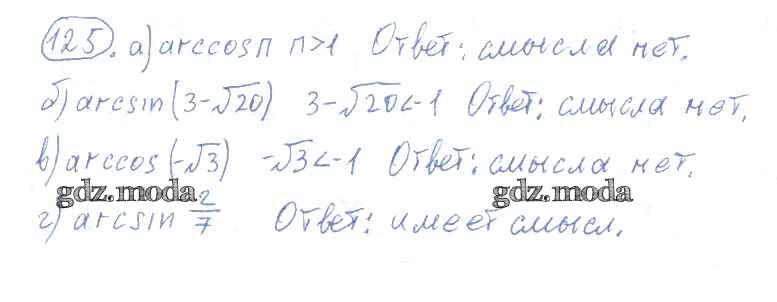 125. а) arccos п п>1 Ответ: смысла нет.
б) arcsin(3-√20) 3-√20<-1 Ответ: смысла нет.
в) arccos(-√3) -√3<-1 Ответ: смысла нет.
gdz.moda gdz.moda
г) arcsin 2/7 Ответ: имеет смысл.